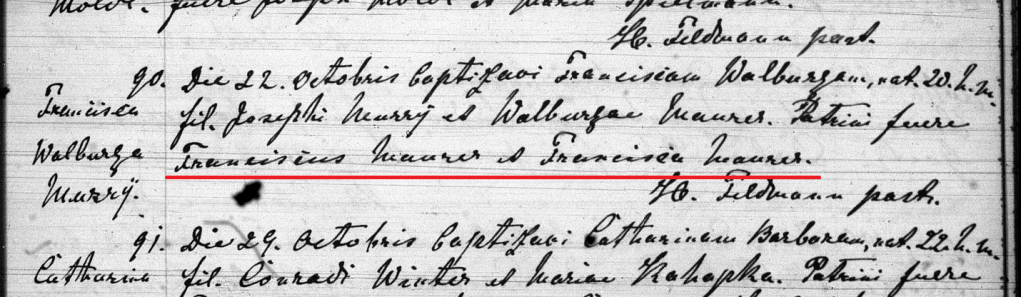 fuere Joseph Molde et Maria
H. Feldmann past.
90. Die 22. Octobris baptizavi Franciscam Walburgam, nat. 20. h. m.
Francisca fil. Josephi Murrÿ et Walburgae Maurer. Patrini fuere
Walburga Franciscus Maurer et Francisca Maurer.
Murrÿ. H. Feldmann past.
91. Die 29. Octobris baptizavi Catharinam Barbaram, nat. 22. h. m.
Catharina fil. Conradi Winter et Mariae Kahapka. Patrini fuere